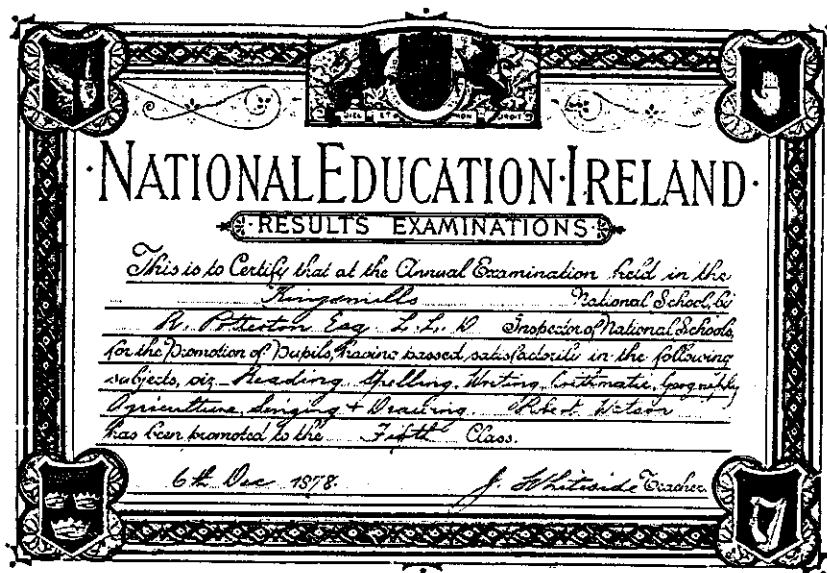 DIEU ET MON DROIT
·NATIONAL EDUCATION·IRELAND·
·RESULTS EXAMINATIONS·
This is to Certify that at the Annual Examination held in the
Kingsmills National School, by
R. Potterton Esq L.L.D Inspector of National Schools,
for the Promotion of Pupils, having passed satisfactorily in the following
subjects, viz Reading, Spelling, Writing, Arithmatic, Geography
Agriculture, Singing + Drawing. Robert Watson
has been promoted to the Fifth Class.
6th Dec 1878. J. Whiteside Teacher.